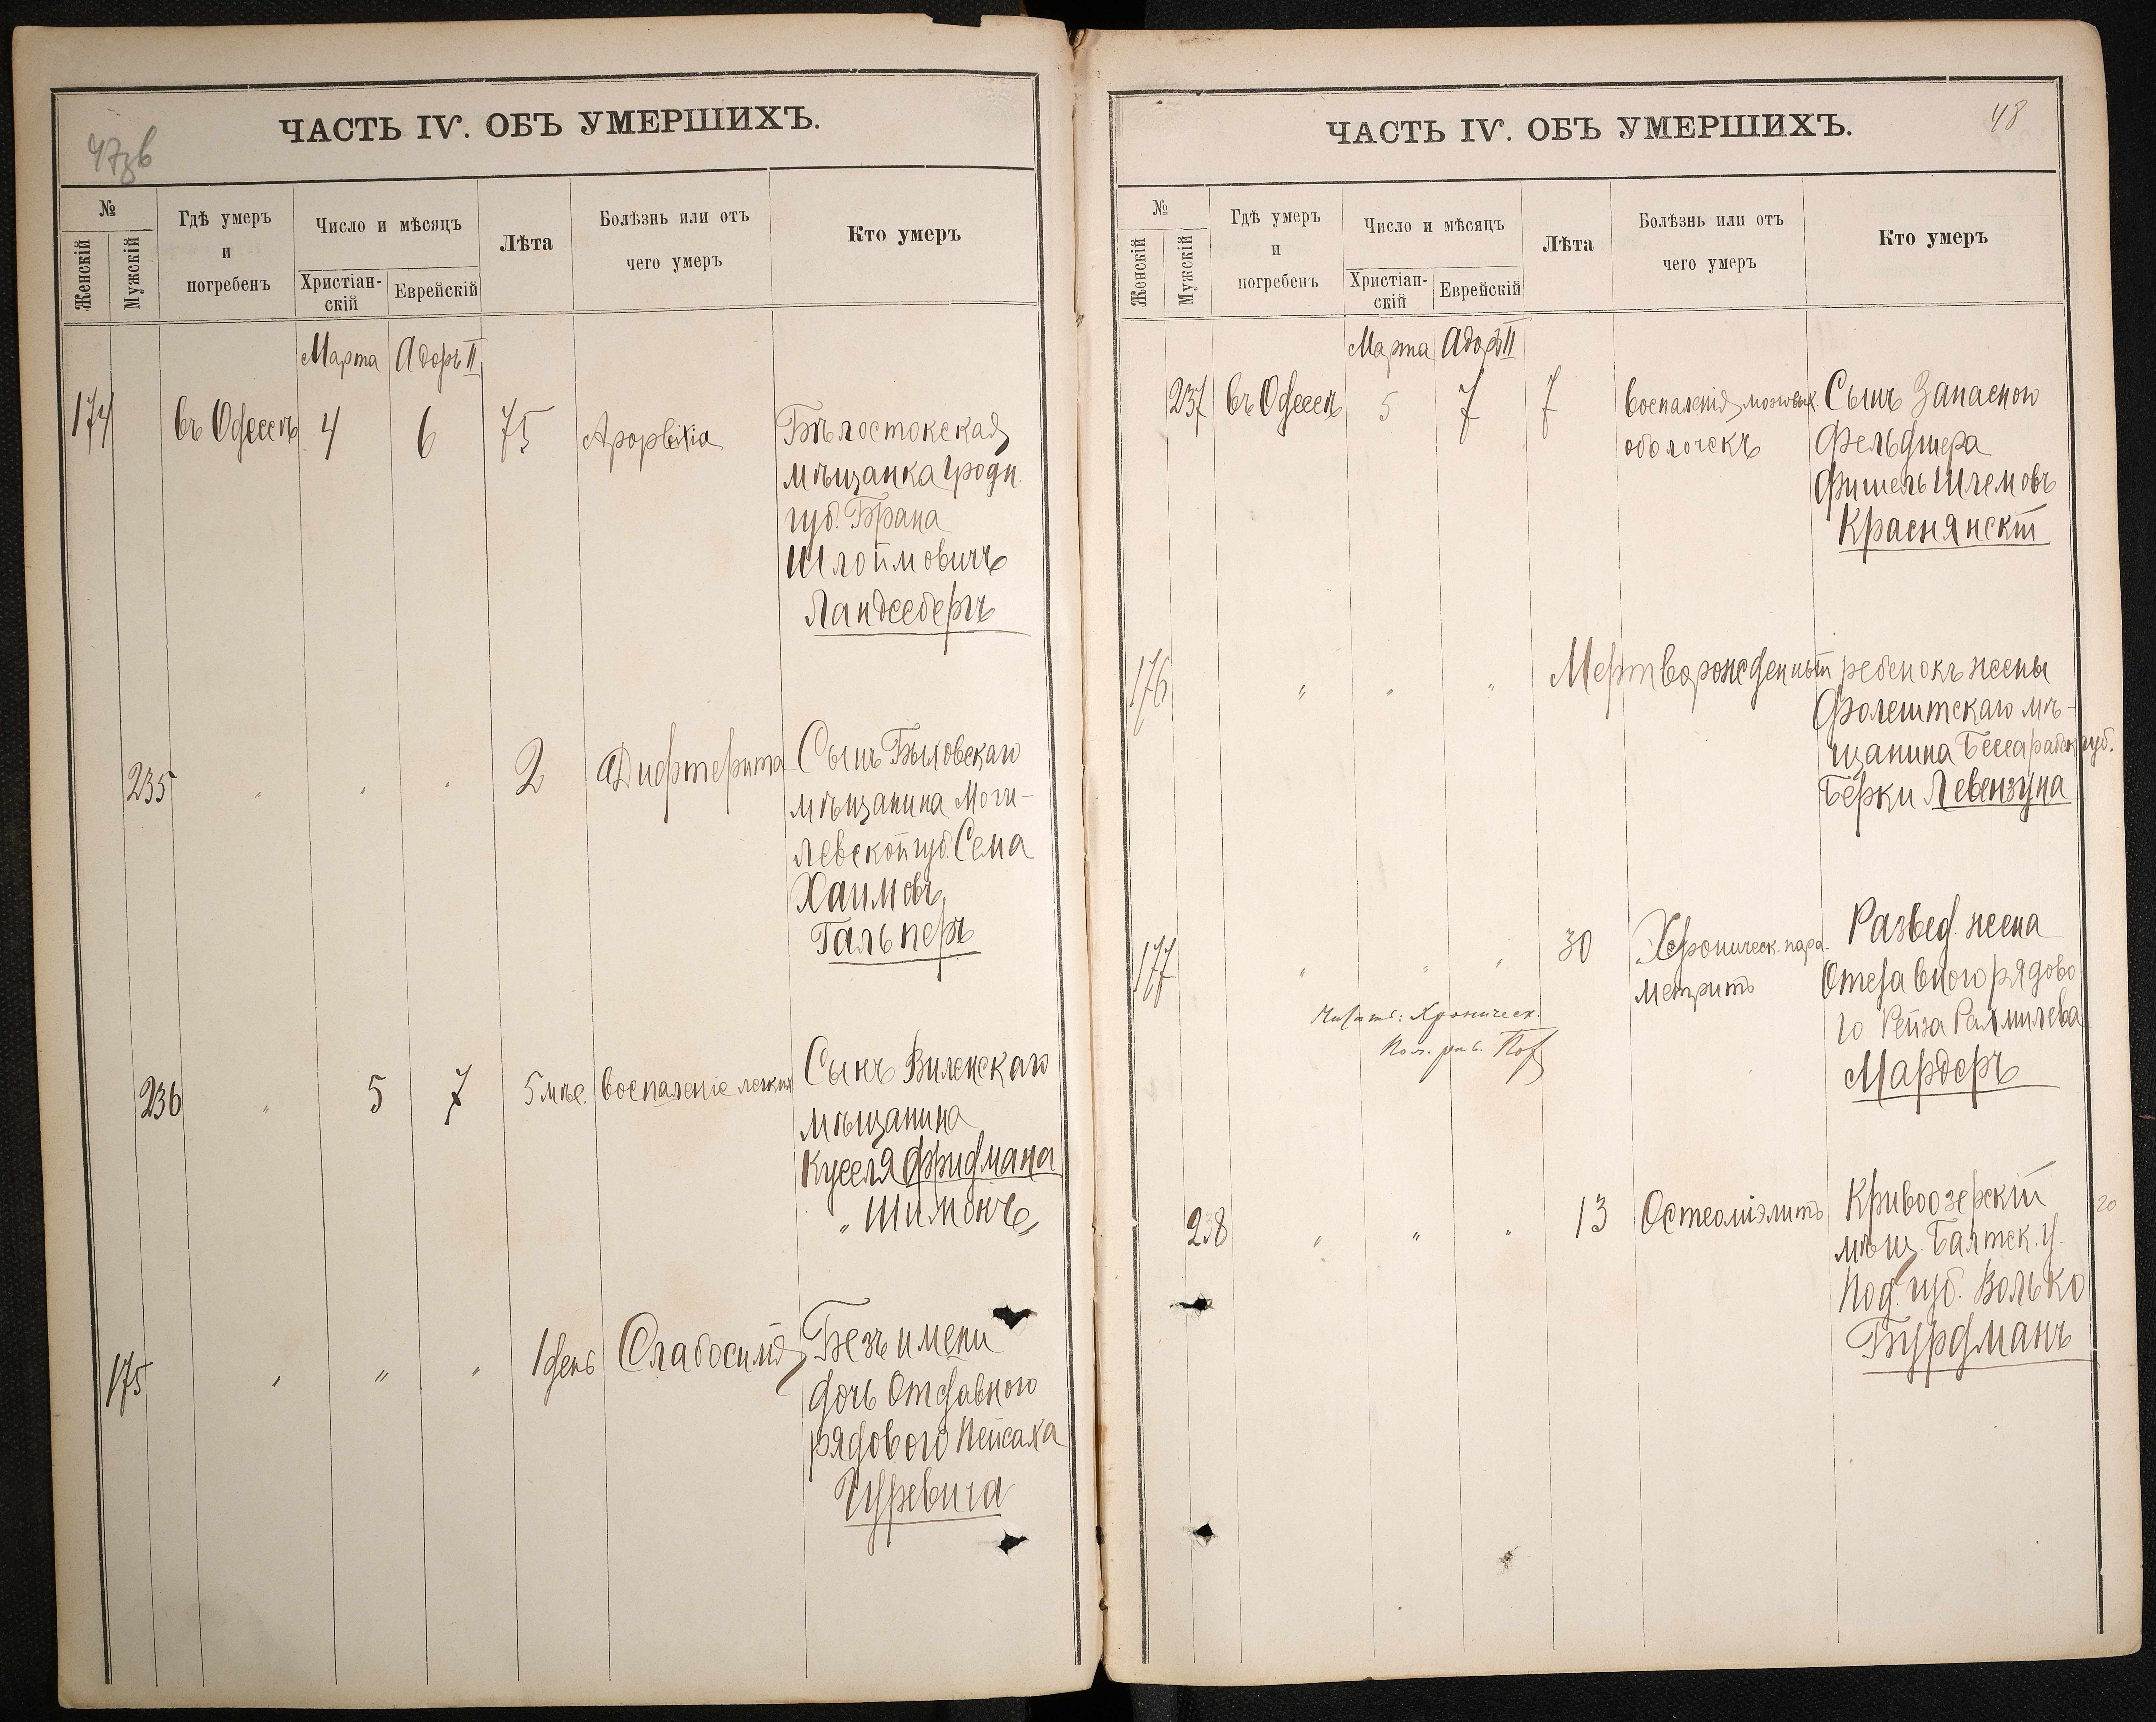 47зв
ЧАСТЬ IV. ОБЪ УМЕРШИХЪ.
№
Женскій
Мужскій
Гдѣ умеръ
и
погребенъ
Число и мѣсяцъ
Христіан-
скій
Еврейскій
Лѣта
Болѣзнь или отъ
чего умеръ
Кто умеръ
Марта Адоръ II
174 въ Одессѣ 4 6 75 Apoplexia Бѣлостокская
мѣщанка Гродн.
губ. Брана
Шлоймовичъ
Ландсбергъ
235 " " " 2 Дифтерита Сынъ Быховскаго
мѣщанина Моги-
левской губ. Сема
Хаимовъ
Гальперъ
236 " 5 7 5 мѣс. воспаленіе легких Сынъ Виленскаго
мѣщанина
Куселя Фридмана
"Шимонъ"
175 " " " 1 день Слабосилія Безъ имени
дочь Отставного
рядового Пейсаха
Гуревича
48
ЧАСТЬ IV. ОБЪ УМЕРШИХЪ.
№
Женскій
Мужскій
Гдѣ умеръ
и
погребенъ
Число и мѣсяцъ
Христіан-
скій
Еврейскій
Лѣта
Болѣзнь или отъ
чего умеръ
Кто умеръ
Марта Адоръ II
237 въ Одессѣ 5 7 7 воспаленія мозговых Сынъ Запасного
оболочекъ Фельдшера
Фишель Шлемовъ
Краснянскій
176 " " " Мертворожденный ребенокъ жены
Фолештскаго мѣ-
щанина Бессарабск губ.
Берки Левензуна
177 " " " 30 Хероническ. пара- Развед. жена
метритъ Отставного рядово
го Рейза Рахмилева
Мардеръ
Читать: Хроническ.
238 " " " 13 Остеоміэлитъ Кривоозерскій 20
мѣщ. Балтск. у.
Под. губ. Волько
Бурдманъ